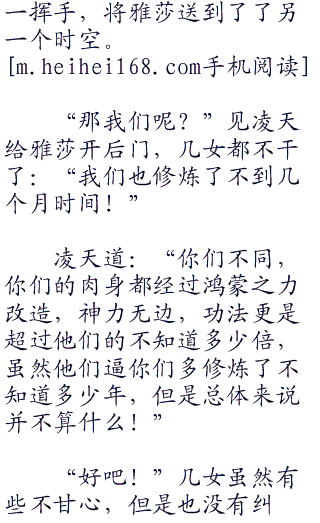 一挥手，将雅莎送到了了另
一个时空。
[m.heihei168.com手机阅读]
“那我们呢？”见凌天
给雅莎开后门，几女都不干
了：“我们也修炼了不到几
个月时间！”
凌天道：“你们不同，
你们的肉身都经过鸿蒙之力
改造，神力无边，功法更是
超过他们的不知道多少倍，
虽然他们逼你们多修炼了不
知道多少年，但是总体来说
并不算什么！”
“好吧！”几女虽然有
些不甘心，但是也没有纠